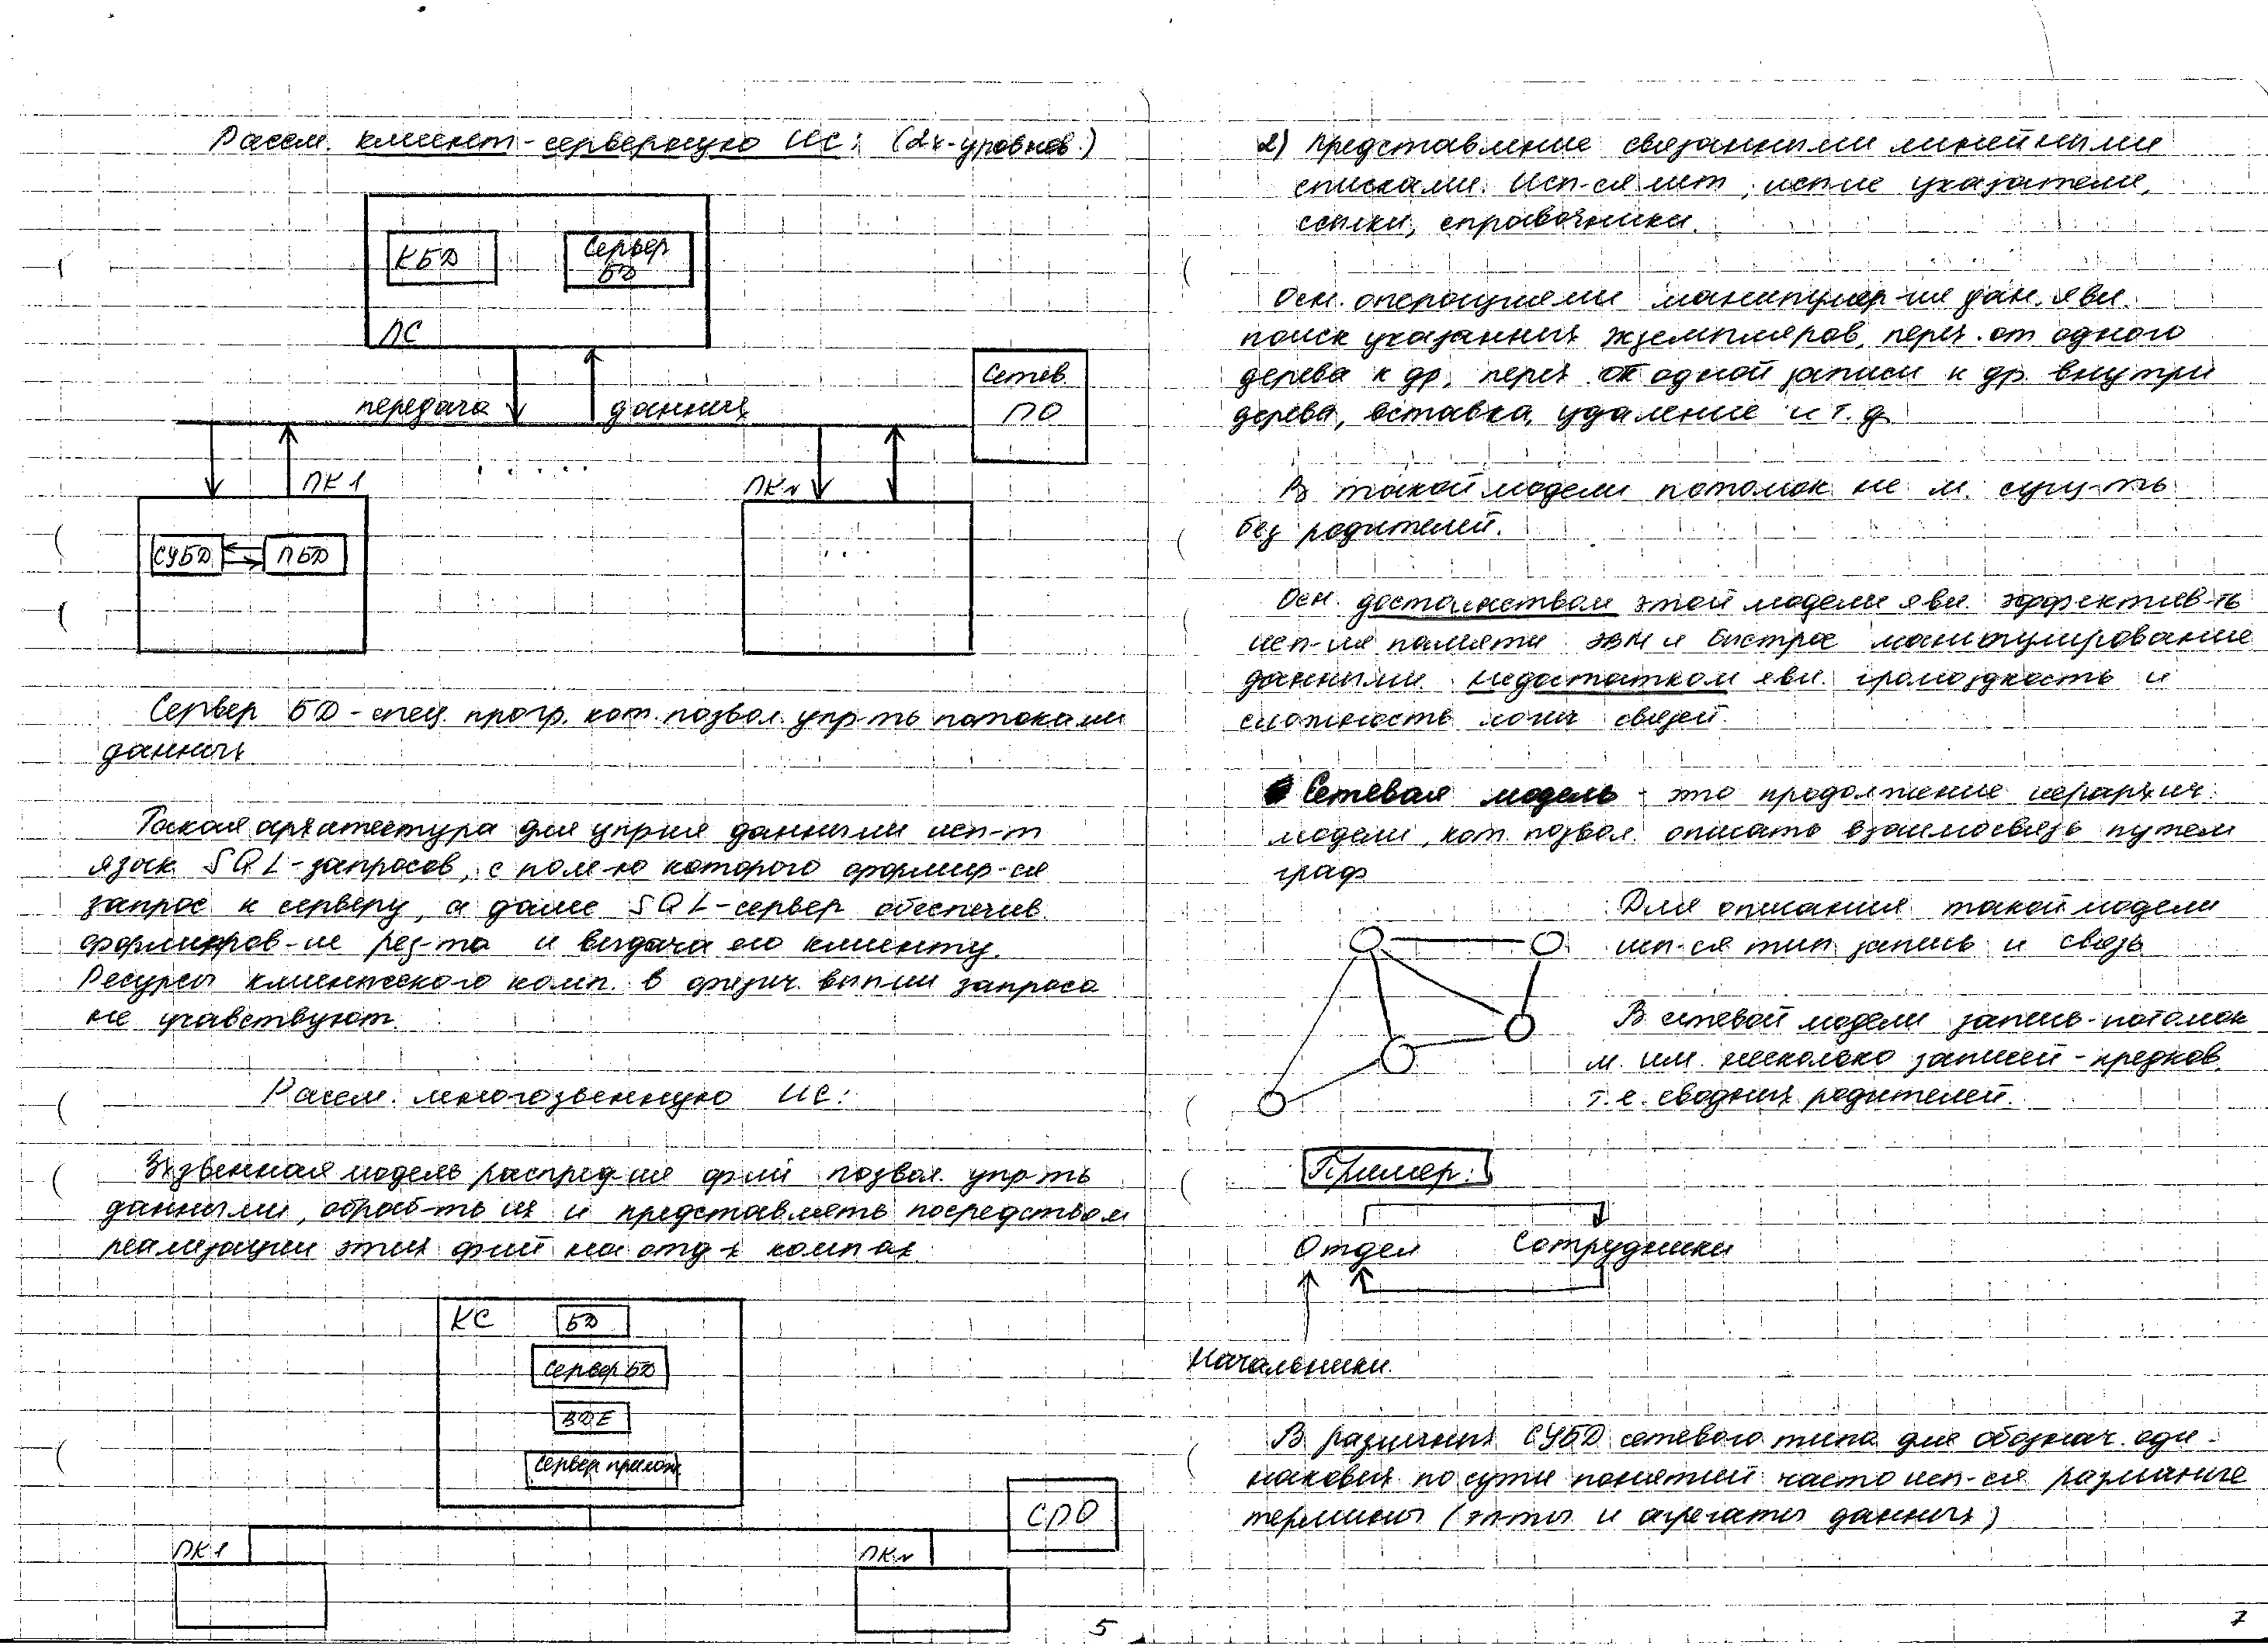 Рассм. клиент-серверную ИС: (2х-уровнев.)
КБД
Сервер
БД
ЛС
Сетев.
ПО
передача данных
ПК1
ПКN
СУБД
ПБД
. . .
Сервер БД - спец. прогр. кот. позвол. упр-ть потоками
данных
Такая архитектура для упр-ия данными исп-т
язык SQL-запросов, с пом-ю которого формир-ся
запрос к серверу, а далее SQL-сервер обеспечив
формиров-ие рез-та и выдача его клиенту.
Ресурсы клиентского комп. в физич. вып-ии запроса
не учавствуют.
Рассм. многозвенную ИС:
3хзвенная модель распред-ия ф-ий позвол. упр-ть
данными, обраб-ть их и представлять посредством
реализации этих ф-ий на отд-х комп-ах.
КС
БД
Сервер БД
BDE
Сервер прилож
СПО
ПК1
ПКN
5
2) Представление связанными линейными
списками. Исп-ся мет, исп-ие указатели,
ссылки, справочники.
Осн. операциями манипулир-ия дан. явл.
поиск указанных экземпляров, перех. от одного
дерева к др, перех. от одной записи к др. внутри
дерева, вставка, удаление и т.д.
В такой модели потомок не м. сущ-ть
без родителей.
Осн. достоинством этой модели явл. эффектив-ть
исп-ия памяти ЭВМ и быстрое манипулирование
данными. Недостатком явл. громоздкость и
сложность логич связей.
Сетевая модель - это продолжение иерархич.
модели, кот. позвол. описать взаимосвязь путем
граф
Для описания такой модели
исп-ся тип запись и связь
В сетевой модели запись-потомок
м. им. несколько записей-предков,
т.е. сводных родителей.
Пример:
Отдел Сотрудники
Начальники.
В различных СУБД сетевого типа для обознач. оди-
наковых по сути понятий часто исп-ся различные
термины (эл-ты и агрегаты данных)
7